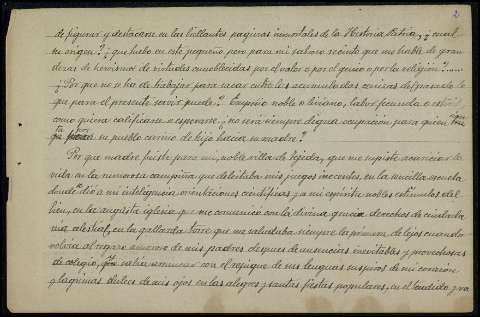 2
de figurar y destacarse en las brillantes paginas inmortales de la Historia Patria, ¿cual es
su origen? ¿que hubo en este pequeño pero para mi sabroso recinto que me hable de gran-
dezas de heroismos de virtudes ennoblecidas por el valor o por el genio o por la religion?.....
¿Por que no he de trabajar para sacar entre las acumuladas cenizas del pasado lo
que para el presente servir puede? Empeño noble o liviano, labor fecunda o estéril,
como quiera calificarse o esperarse, ¿no será siempre digna ocupación para quien
por su pueblo cariño de hijo hacia su madre?
Por que madre fuiste para mi, noble villa de Tejeda, que me supiste acariciar la
vida en la rumorosa campiña que deleitaba mis juegos inocentes, en la sencilla escuela
donde dió a mi inteligencia orientaciones cientificas y a mi espíritu nobles estimulos del
bien, en la augusta iglesia que me comunicó con la divina gracia derechos de ciudada
nia celestial, en tu gallarda torre que me saludaba siempre la primera de lejos cuando
volvia al regazo amoroso de mis padres despues de ausencias inevitables y provechosas
de colegio, sabia arrancar con el repique de sus lenguas suspiros de mi corazón
y lagrimas dulces de mis ojos en las alegres y santas fiestas populares, en el bendito y ra